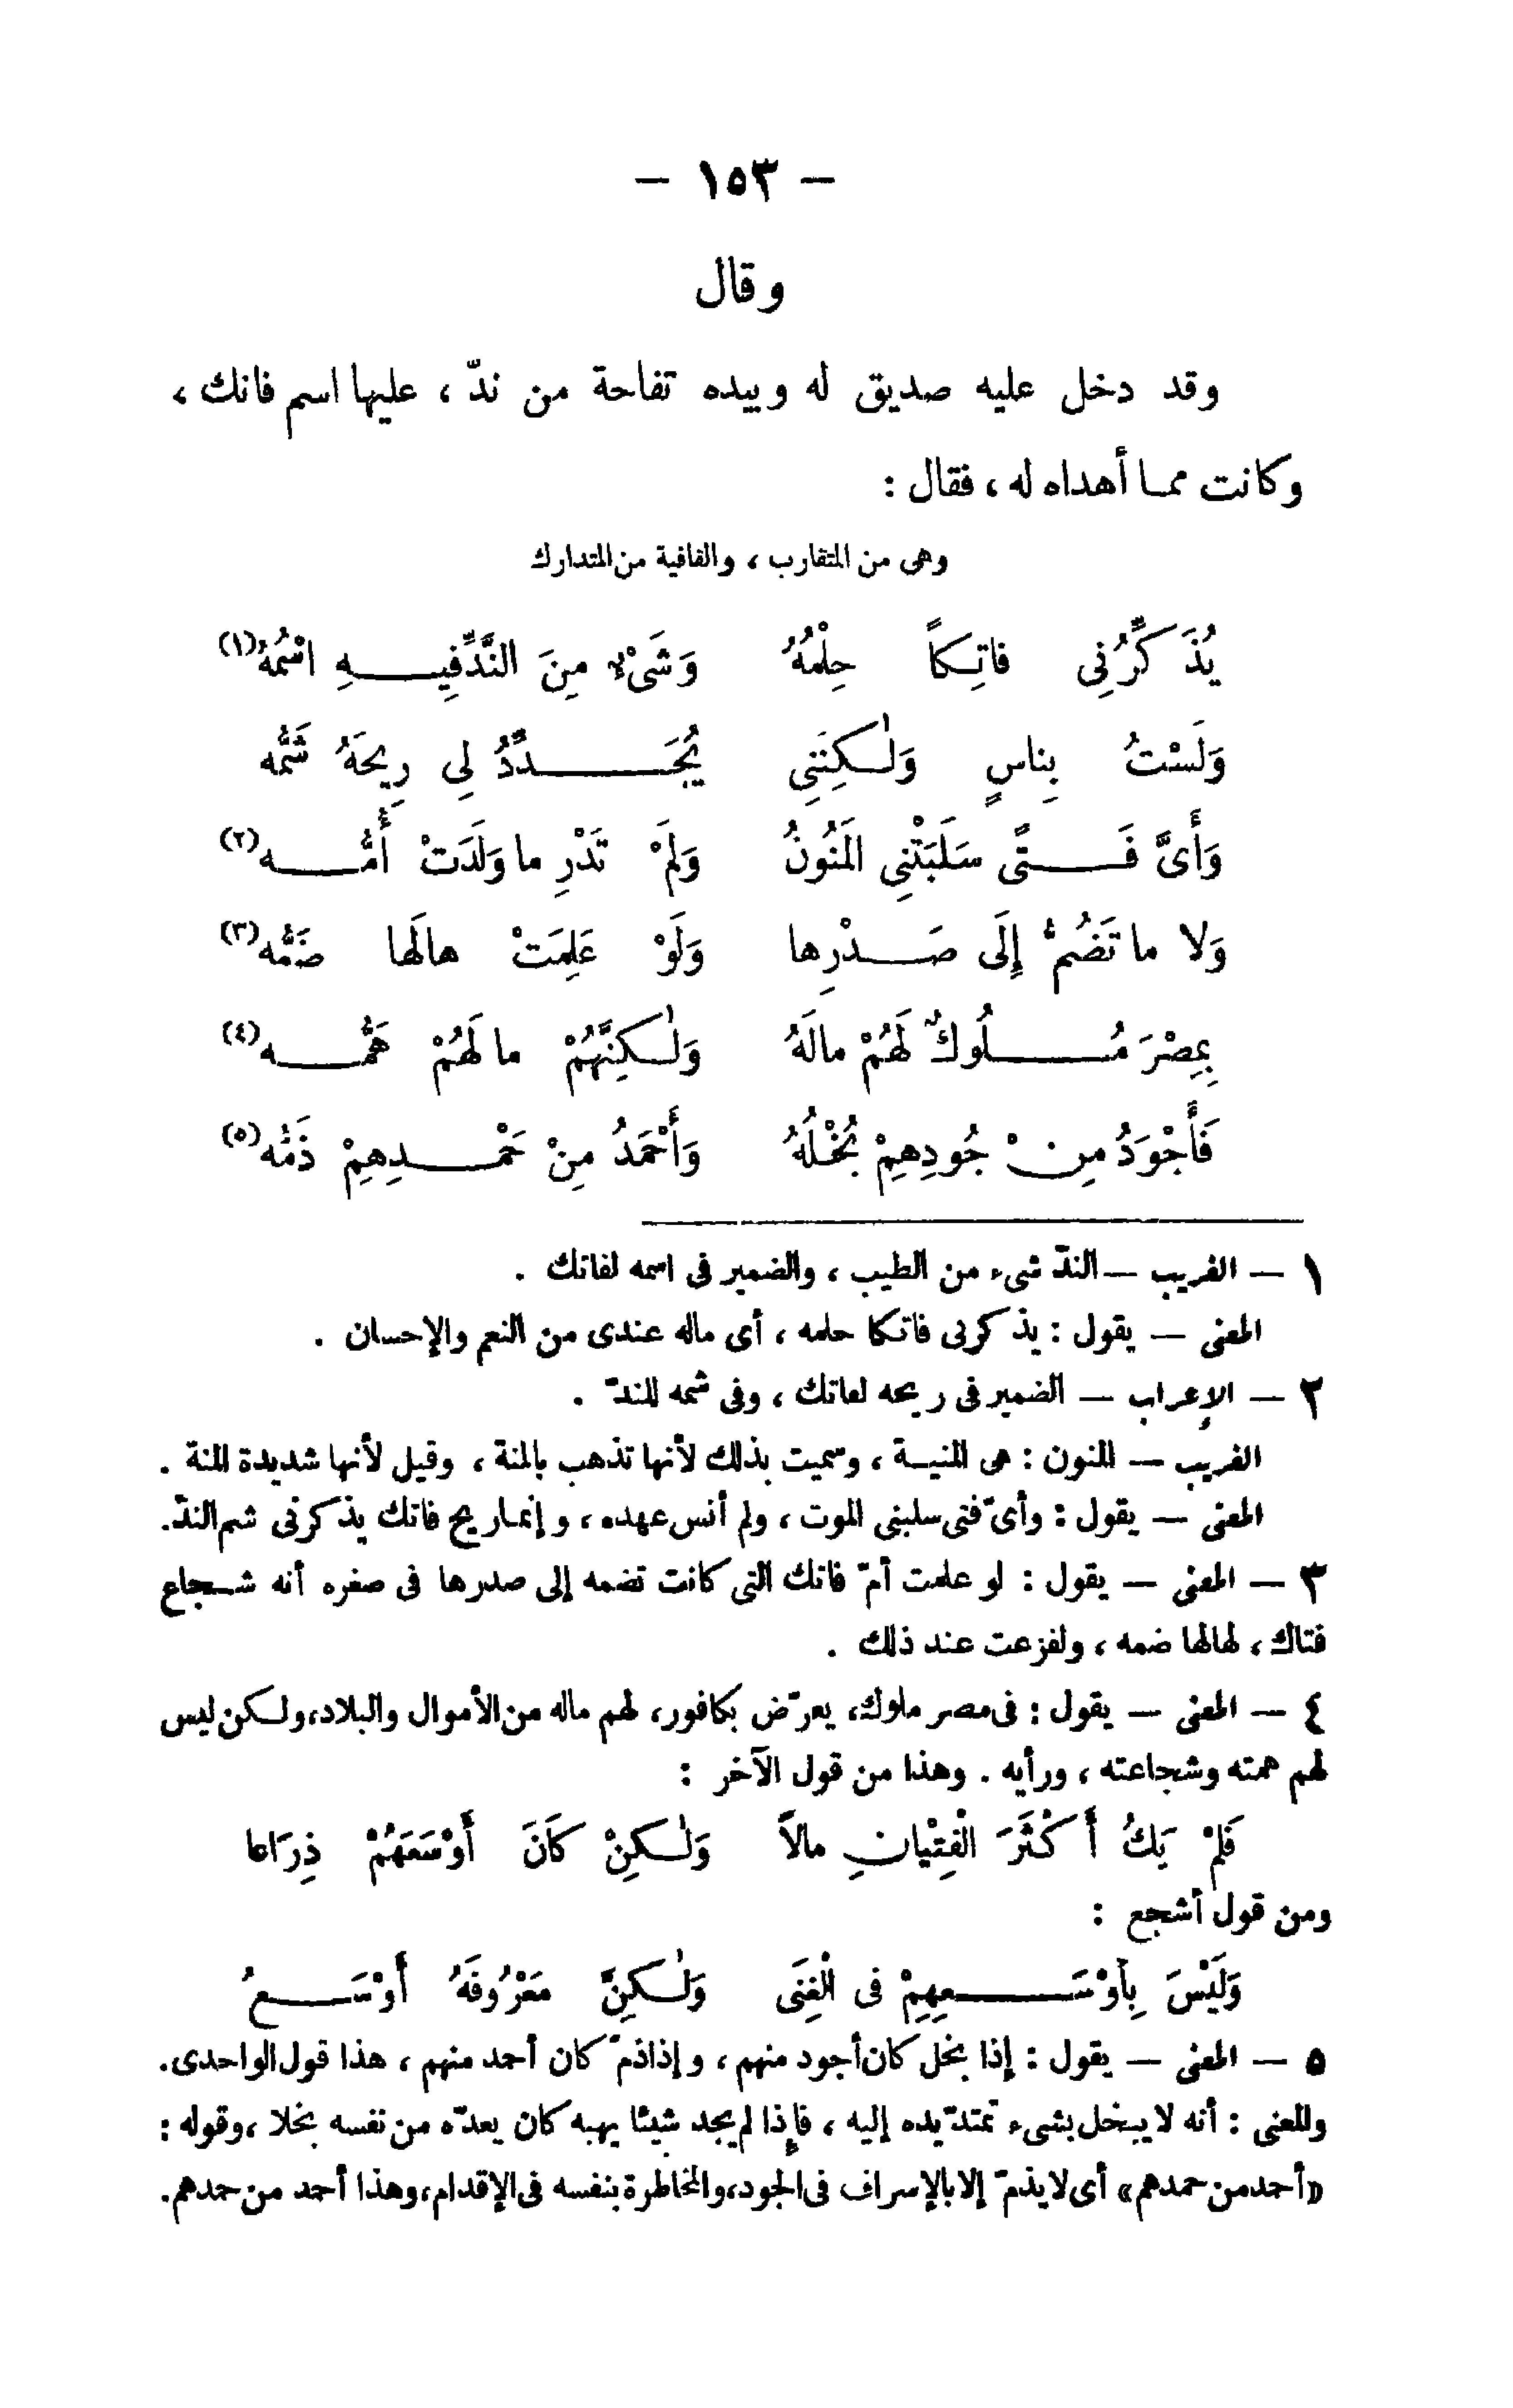 — ١٥٣ —
وقال
وقد دخل عليه صديق له وبيده تفاحة من ندّ ، عليها اسم فاتك ،
وكانت مما أهداه له ، فقال :
وهى من المتقارب ، والقافية من المتدارك
يُذَكِّرُنِى فاتِكاً حِلْمُهُ وَشَىْءٌ مِنَ النَّدِّ فِيهِ اسْمُهُ (١)
وَلَسْتُ بِناسٍ وَلٰكِنَّنِى يُجَدِّدُ لِى رِيحَهُ شَمُّه
وَأَىَّ فَتًى سَلَبَتْنِى المَنُونُ وَلَمْ تَدْرِ ما وَلَدَتْ أُمُّه (٢)
وَلا ما تَضُمُّ إِلَى صَدْرِها وَلَوْ عَلِمَتْ هالَها ضَمُّه (٣)
بِمِصْرَ مُلُوكٌ لَهُمْ مالَهُ وَلٰكِنَّهُمْ ما لَهُمْ هَمُّه (٤)
فَأَجْوَدُ مِنْ جُودِهِمْ بُخْلُهُ وَأَحْمَدُ مِنْ حَمْدِهِمْ ذَمُّه (٥)
١ — الغريب — الندّ شىء من الطيب ، والضمير فى اسمه لفاتك .
المعنى — يقول : يذكرنى فاتكا حلمه ، أى ماله عندى من النعم والإحسان .
٢ — الإعراب — الضمير فى ريحه لفاتك ، وفى شمه للندّ .
الغريب — المنون : هى المنية ، وسميت بذلك لأنها تذهب بالمنة ، وقيل لأنها شديدة المنة .
المعنى — يقول : وأىّ فتى سلبنى الموت ، ولم أنس عهده ، وإنما ريح فاتك يذكرنى شم الندّ.
٣ — المعنى — يقول : لو علمت أمّ فاتك التى كانت تضمه إلى صدرها فى صغره أنه شجاع
فتاك ، لهالها ضمه ، ولفزعت عند ذلك .
٤ — المعنى — يقول : فى مصر ملوك، يعرّض بكافور، لهم ماله من الأموال والبلاد، ولكن ليس
لهم همته وشجاعته ، ورأيه . وهذا من قول الآخر :
فَلَمْ يَكُ أَكْثَرَ الْفِتْيانِ مالاً وَلٰكِنْ كَانَ أَوْسَعَهُمْ ذِرَاعا
ومن قول أشجع :
وَلَيْسَ بِأَوْسَعِهِمْ فى الْغِنَى وَلٰكِنَّ مَعْرُوفَهُ أَوْسَعُ
٥ — المعنى — يقول : إذا بخل كان أجود منهم ، وإذا ذمّ كان أحمد منهم ، هذا قول الواحدى.
والمعنى : أنه لا يبخل بشىء تمتدّ يده إليه ، فإذا لم يجد شيئا يهبه كان يعدّه من نفسه بخلا ، وقوله :
«أحمد من حمدهم» أى لا يذمّ إلا بالإسراف فى الجود، والمخاطرة بنفسه فى الإقدام، وهذا أحمد من حمدهم.